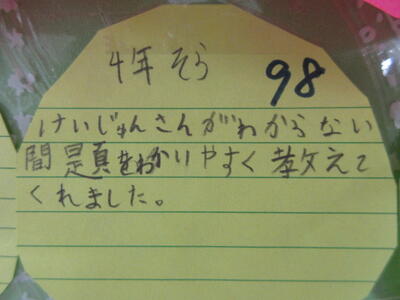 4年 そら 98
けいじゅんさんがわからない
問題をわかりやすく教えて
くれました。